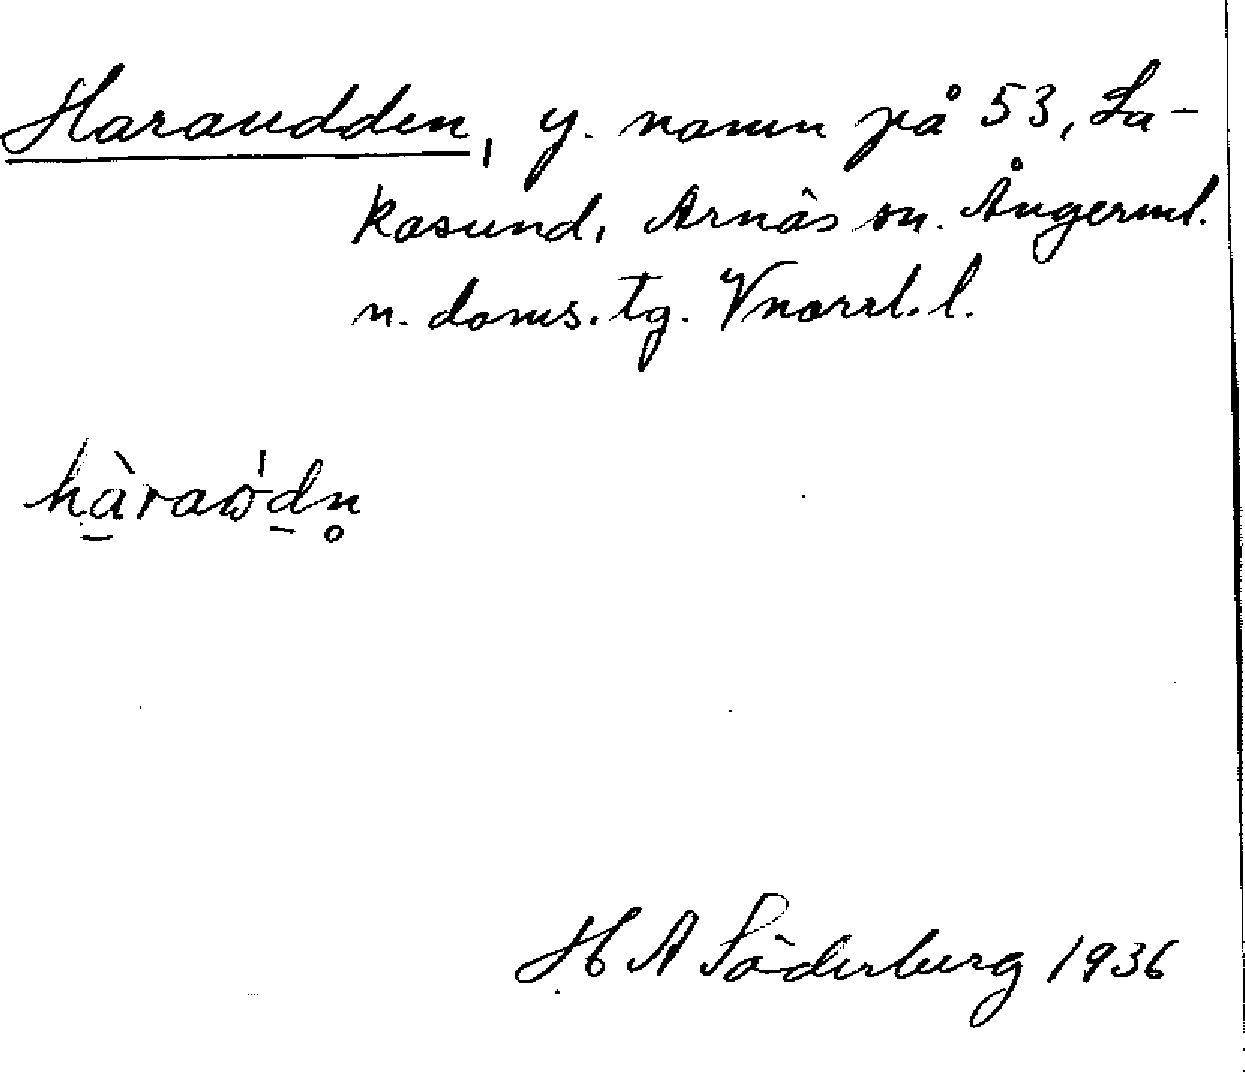 Haraudden, y. namn på 53, La-
kasund, Arnäs sn. Ångerml.
n. doms. tg. Vnorrl. l.
hàraω'dn̥
H A Söderberg 1936